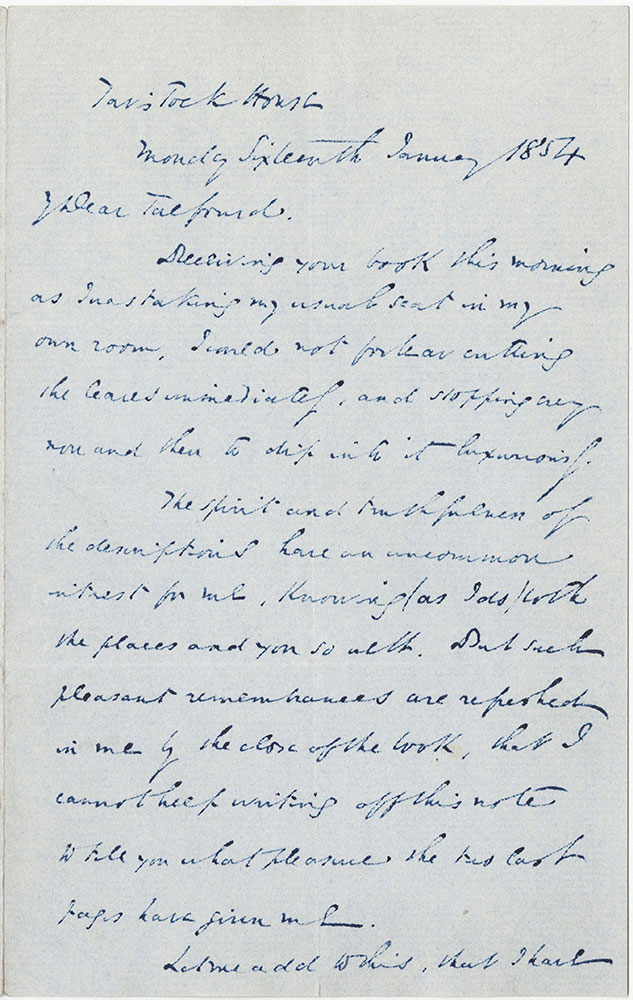 Tavistock House
Monday Sixteenth January 1854
My Dear Talfourd.
Receiving your book this morning
as I was taking my usual seat in my
own room, I could not forbear cutting
the leaves immediately, and stopping every
now and then to dip into it luxuriously.
The spirit and truthfulness of
the descriptions have an uncommon
interest for me, knowing (as I do) both
the places and you so well. But such
pleasant remembrances are refreshed
in me by the close of the book, that I
cannot help writing off this note
to tell you what pleasure the two last
pages have given me.
Let me add to this, that I have